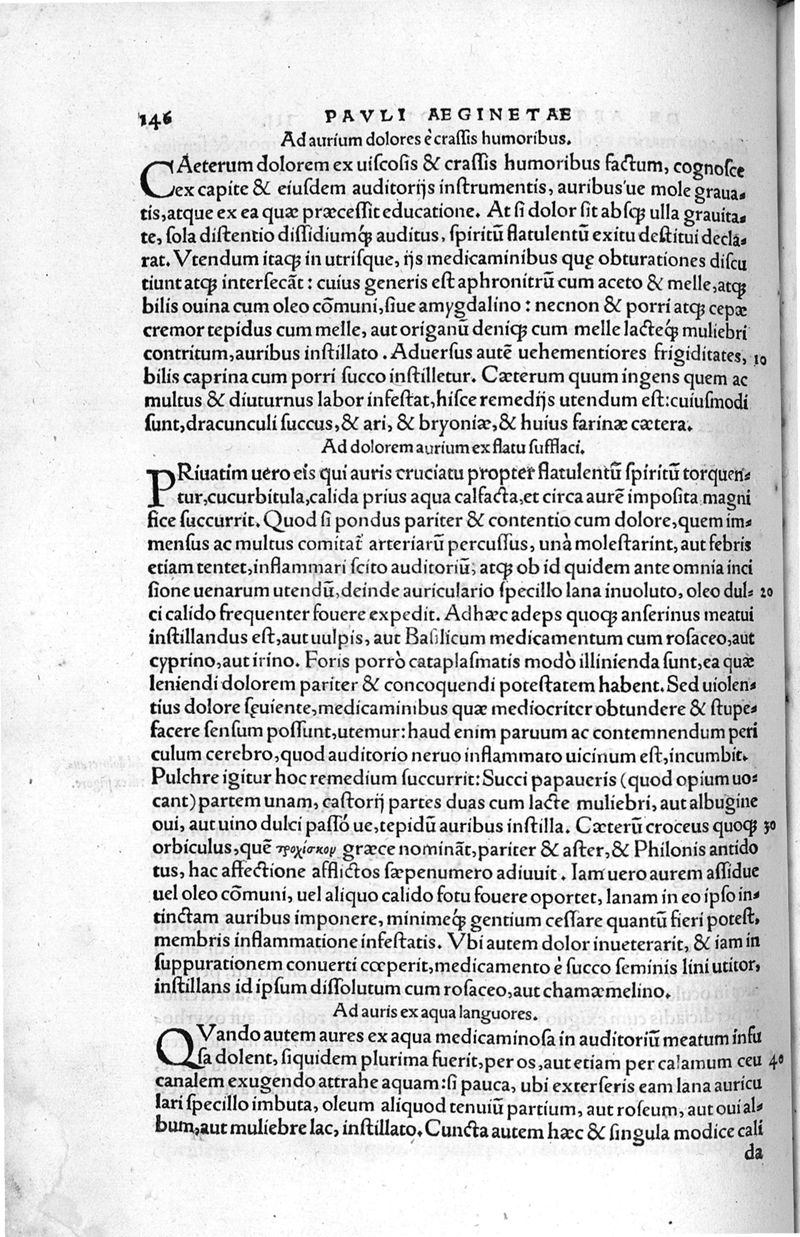 146 PAVLI AEGINETAE
Ad aurium dolores è crassis humoribus.
CAeterum dolorem ex uiscosis & crassis humoribus factum, cognosce
ex capite & eiusdem auditorijs instrumentis, auribus'ue mole graua-
tis, atque ex ea quæ præcessit educatione. At si dolor sit absq; ulla grauita-
te, sola distentio dissidiumq; auditus, spiritũ flatulentũ exitu destitui decla-
rat. Vtendum itaq; in utrisque, ijs medicaminibus quę obturationes discu
tiunt atq; intersecãt: cuius generis est aphronitrũ cum aceto & melle, atq;
bilis ouina cum oleo cõmuni, siue amygdalino: necnon & porri atq; cepæ
cremor tepidus cum melle, aut origanũ deniq; cum melle lacteq; muliebri
contritum, auribus instillato. Aduersus autẽ uehementiores frigiditates, 10
bilis caprina cum porri succo instilletur. Cæterum quum ingens quem ac
multus & diuturnus labor infestat, hisce remedijs utendum est: cuiusmodi
sunt, dracunculi succus, & ari, & bryoniæ, & huius farinæ cætera.
Ad dolorem aurium ex flatu sufflaci.
PRiuatim uero eis qui auris cruciatu propter flatulentũ spiritũ torquen-
tur, cucurbitula, calida prius aqua calfacta, et circa aurẽ imposita magni
fice succurrit. Quod si pondus pariter & contentio cum dolore, quem im-
mensus ac multus comitat arteriarũ percussus, unà molestarint, aut febris
etiam tentet, inflammari scito auditoriũ; atq; ob id quidem ante omnia inci
sione uenarum utendũ, deinde auriculario specillo lana inuoluto, oleo dul- 20
ci calido frequenter fouere expedit. Adhæc adeps quoq; anserinus meatui
instillandus est, aut uulpis, aut Basilicum medicamentum cum rosaceo, aut
cyprino, aut irino. Foris porrò cataplasmatis modò illinienda sunt, ea quæ
leniendi dolorem pariter & concoquendi potestatem habent. Sed uiolen-
tius dolore sęuiente, medicaminibus quæ mediocriter obtundere & stupe-
facere sensum possunt, utemur: haud enim paruum ac contemnendum peri
culum cerebro, quod auditorio neruo inflammato uicinum est, incumbit.
Pulchre igitur hoc remedium succurrit: Succi papaueris (quod opium uo-
cant) partem unam, castorij partes duas cum lacte muliebri, aut albugine
oui, aut uino dulci passó ue, tepidũ auribus instilla. Cæterũ croceus quoq; 30
orbiculus, quẽ τροχίσκον græce nominãt, pariter & aster, & Philonis antido
tus, hac affectione afflictos sæpenumero adiuuit. Iam uero aurem assidue
uel oleo cõmuni, uel aliquo calido fotu fouere oportet, lanam in eo ipso in-
tinctam auribus imponere, minimeq; gentium cessare quantũ fieri potest,
membris inflammatione infestatis. Vbi autem dolor inueterarit, & iam in
suppurationem conuerti cœperit, medicamento è succo seminis lini utitor,
instillans id ipsum dissolutum cum rosaceo, aut chamæmelino.
Ad auris ex aqua languores.
QVando autem aures ex aqua medicaminosa in auditoriũ meatum infu
sa dolent, siquidem plurima fuerit, per os, aut etiam per calamum ceu 40
canalem exugendo attrahe aquam: si pauca, ubi exterseris eam lana auricu
lari specillo imbuta, oleum aliquod tenuiũ partium, aut roseum, aut oui al-
bum, aut muliebre lac, instillato. Cuncta autem hæc & singula modice cali
da